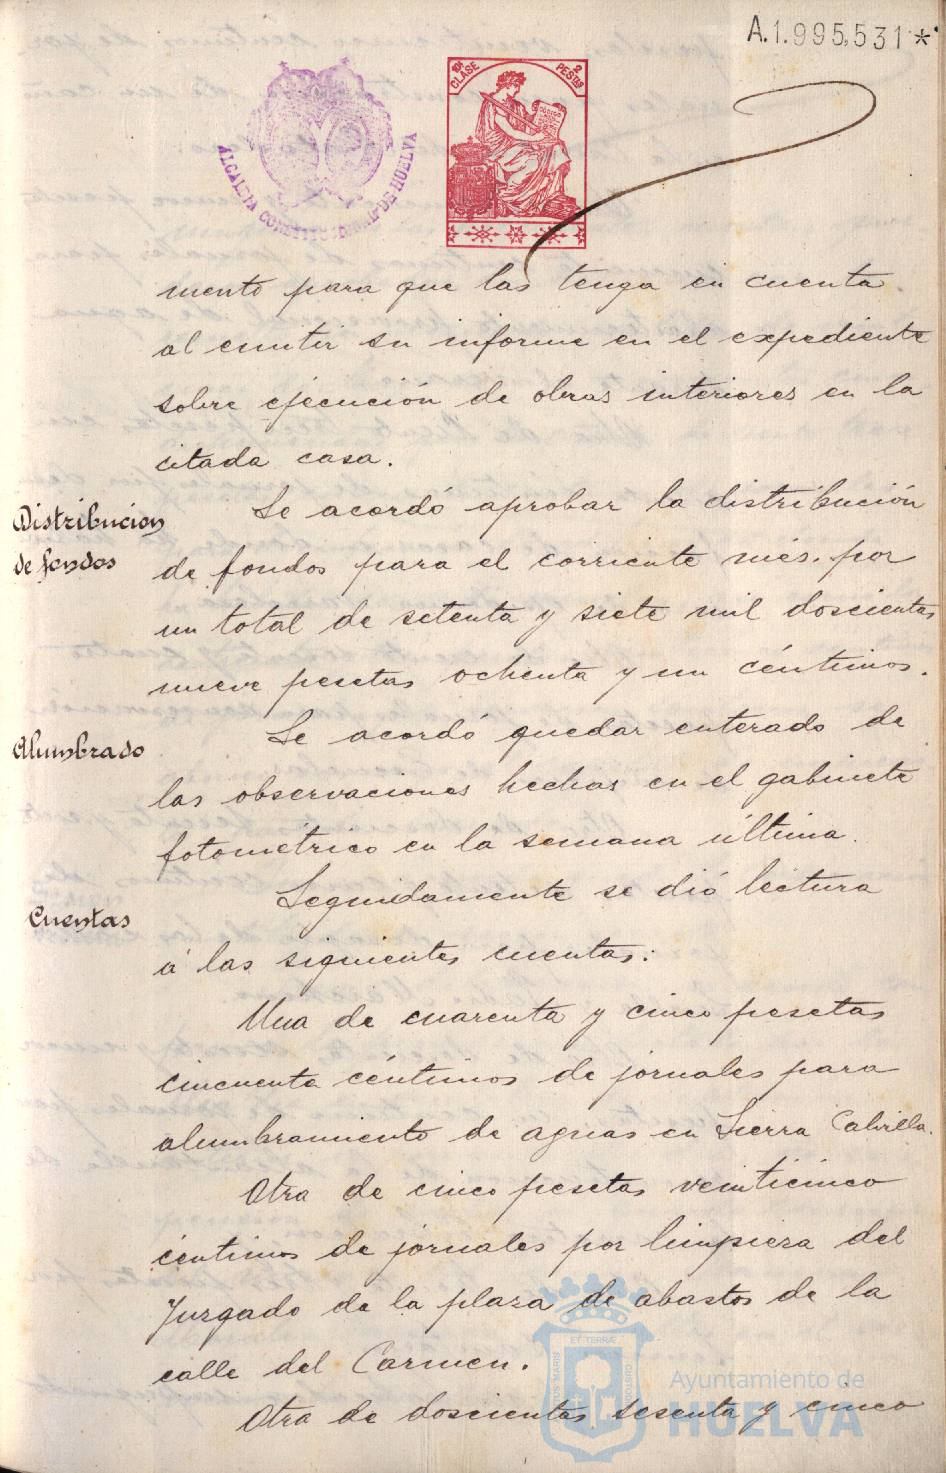 A.1.995,531*
10ª CLASE
2 PESTAS
ALCALDIA CONSTITUCIONAL DE HUELVA
mento para que las tenga en cuenta
al emitir su informe en el expediente
sobre ejecución de obras interiores en la
citada casa.
Distribucion
de fondos
Se acordó aprobar la distribución
de fondos para el corriente mes, por
un total de setenta y siete mil doscientas
nueve pesetas ochenta y un céntimos.
Alumbrado
Se acordó quedar enterado de
las observaciones hechas en el gabinete
fotométrico en la semana última.
Cuentas
Seguidamente se dió lectura
á las siguientes cuentas:
Una de cuarenta y cinco pesetas
cincuenta céntimos de jornales para
alumbramiento de aguas en Sierra Cabrilla.
Otra de cinco pesetas veinticinco
céntimos de jornales por limpieza del
Juzgado de la plaza de abastos de la
calle del Carmen.
Otra de doscientas sesenta y cinco
Ayuntamiento de
HUELVA